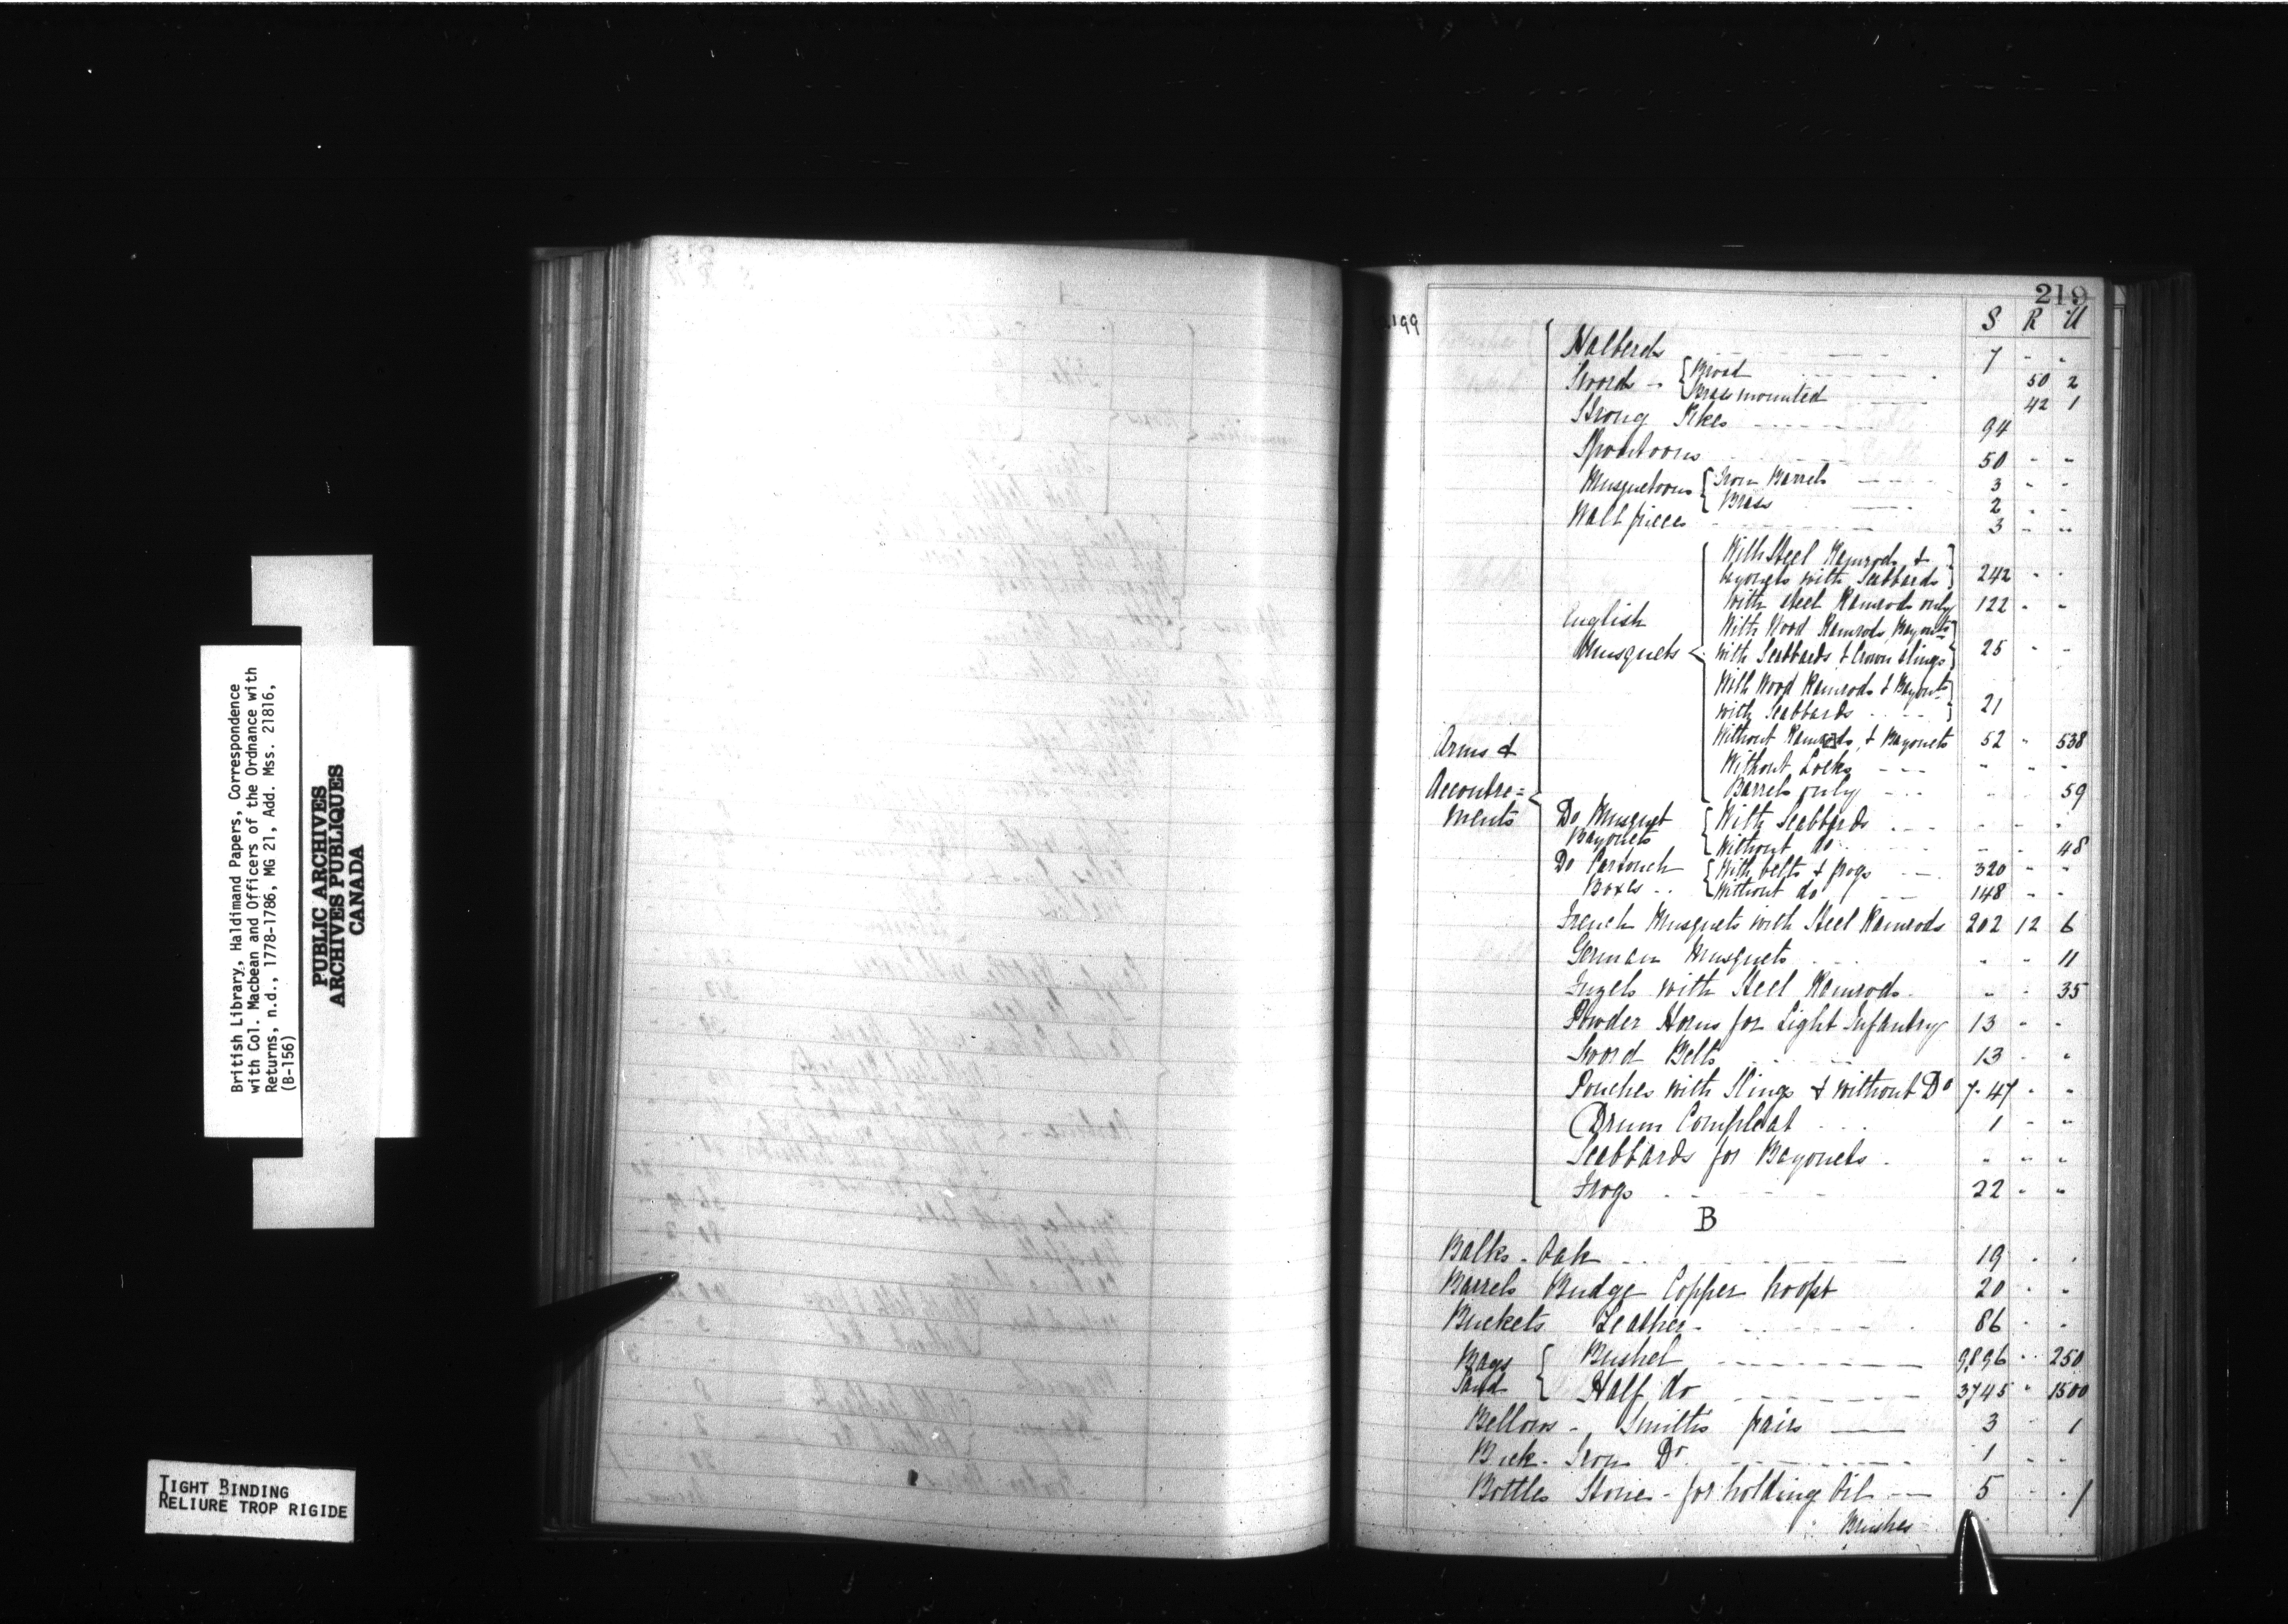 British Library, Haldimand Papers, Correspondence
with Col. Macbean and Officers of the Ordnance with
Returns, n.d., 1778-1786, MG 21, Add. Mss. 21816,
(B-156)
PUBLIC ARCHIVES
ARCHIVES PUBLIQUES
CANADA
TIGHT BINDING
RELIURE TROP RIGIDE
219
199
S R U
Halberds 7 - -
Swords - { Broad 50 2
Brass mounted 42 1
Strong Pikes 94
Spontoons 50 - -
Musquetoons { Iron Barrels 3 - -
Brass 2 - -
Wall pieces 3 - -
Arms &
Accoutre=
ments
English
Musquets
With Steel Ramrods &
Bayonets with Scabbards 242 - -
With steel Ramrods only 122 - -
With Wood Ramrods, Bayonts
with Scabbards & brown slings 25 - -
With Wood Ramrods & Bayonts
with Scabbards 21
Without Ramrods, & Bayonets 52 " 538
Without Locks - - -
Barrels only 59
Do Musquet
Bayonets
{ With Scabbards - - -
Without do - - 48
Do Cartouch
Boxes
{ With belts & frogs 320 - -
Without do 148 - -
French Musquets with Steel Ramrods 202 12 6
German Musquets - - 11
Fuzels with Steel Ramrods - - 35
Powder Horns for Light Infantry 13 - -
Sword Belts 13 - -
Pouches with Slings & without Do 7-47 - -
Drum Compleat 1 - -
Scabbards for Bayonets - - -
Frogs 22 - -
B
Balks - Oak 19 - -
Barrels Budge Copper hoopt 20 - -
Buckets Leather 86 - -
Bags
Sand
{ Bushel 9896 - 250
Half do 3745 " 1500
Bellows - Smiths pairs 3 - 1
Bick - Iron Do 1 - -
Bottles Stone - for holding Oil 5 - 1
Brushes